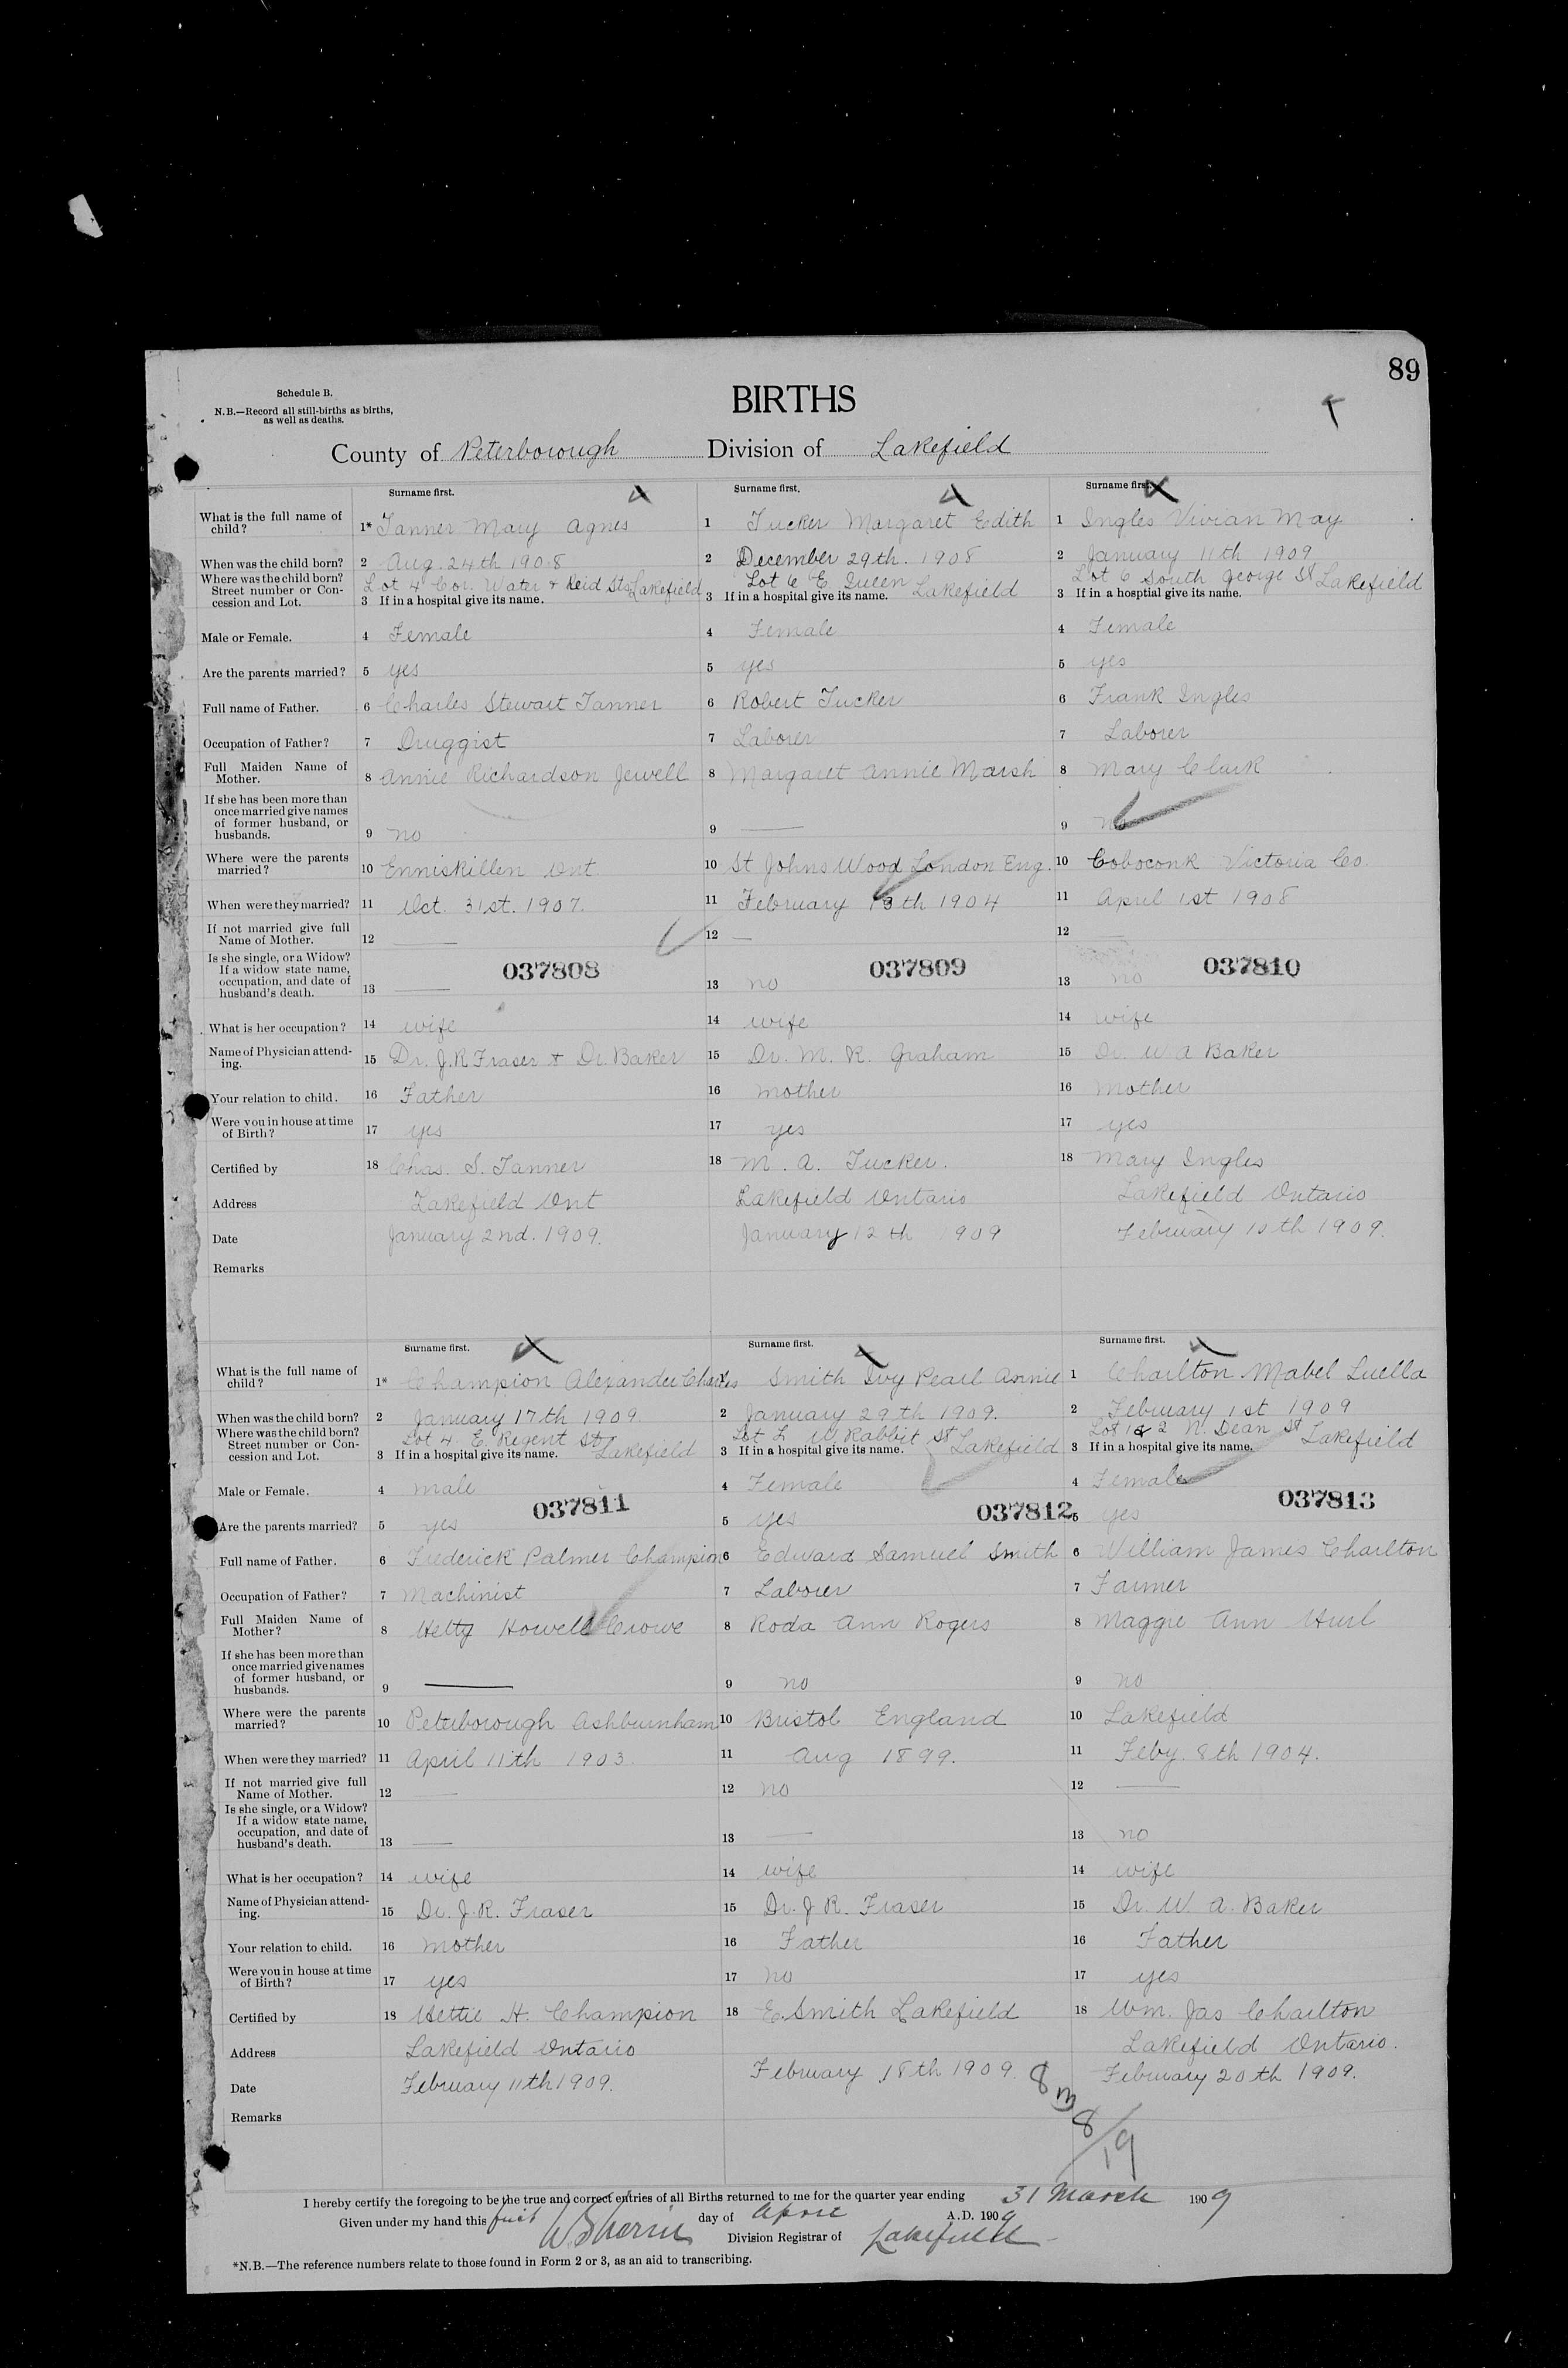 89
Schedule B.
BIRTHS
N.B.—Record all still-births as births,
as well as deaths.
County of Peterborough Division of Lakefield
Surname first. Surname first. Surname first.
What is the full name of child? 1* Tanner Mary Agnes 1 Tucker Margaret Edith 1 Ingles Vivian May
When was the child born? 2 Aug. 24th 1908 2 December 29th. 1908 2 January 11th 1909
Where was the child born? Street number or Concession and Lot. Lot 4 Cor. Water + Reid Sts Lakefield Lot 6 E Queen Lakefield Lot 6 South George St Lakefield
3 If in a hospital give its name. 3 If in a hospital give its name. 3 If in a hosptial give its name.
Male or Female. 4 Female 4 Female 4 Female
Are the parents married? 5 yes 5 yes 5 yes
Full name of Father. 6 Charles Stewart Tanner 6 Robert Tucker 6 Frank Ingles
Occupation of Father? 7 Druggist 7 Laborer 7 Laborer
Full Maiden Name of Mother. 8 Annie Richardson Jewell 8 Margaret Annie Marsh 8 Mary Clark
If she has been more than once married give names of former husband, or husbands. 9 no 9 — 9 no
Where were the parents married? 10 Enniskillen Ont. 10 St Johns Wood London Eng. 10 Coboconk Victoria Co.
When were they married? 11 Oct. 31st. 1907. 11 February 13th 1904 11 April 1st 1908
If not married give full Name of Mother. 12 — 12 — 12 —
037808 037809 037810
Is she single, or a Widow? If a widow state name, occupation, and date of husband's death. 13 — 13 no 13 no
What is her occupation? 14 wife 14 wife 14 wife
Name of Physician attending. 15 Dr. J.R Fraser + Dr. Baker 15 Dr. M. R. Graham 15 Dr. W. A Baker
Your relation to child. 16 Father 16 mother 16 Mother
Were you in house at time of Birth? 17 yes 17 yes 17 yes
Certified by 18 Chas. S. Tanner 18 M. A. Tucker. 18 Mary Ingles
Address Lakefield Ont Lakefield Ontario Lakefield Ontario
Date January 2nd. 1909. January 12th 1909 February 10th 1909.
Remarks
Surname first. Surname first. Surname first.
What is the full name of child? 1* Champion Alexander Charles 1 Smith Ivy Pearl Annie 1 Charlton Mabel Luella
When was the child born? 2 January 17th 1909. 2 January 29th 1909. 2 February 1st 1909
Where was the child born? Street number or Concession and Lot. Lot 4. E. Regent St Lakefield Lot L W Rabbit St Lakefield Lot 1 & 2 N. Dean St Lakefield
3 If in a hospital give its name. 3 If in a hospital give its name. 3 If in a hospital give its name.
Male or Female. 4 male 4 Female 4 Female
037811 037812 037813
Are the parents married? 5 yes 5 yes 5 yes
Full name of Father. 6 Frederick Palmer Champion 6 Edward Samuel Smith 6 William James Charlton
Occupation of Father? 7 Machinist 7 Laborer 7 Farmer
Full Maiden Name of Mother? 8 Hetty Howell Crowe 8 Roda Ann Rogers 8 Maggie Ann Hurl
If she has been more than once married give names of former husband, or husbands. 9 — 9 no 9 no
Where were the parents married? 10 Peterborough Ashburnham 10 Bristol England 10 Lakefield
When were they married? 11 April 11th 1903. 11 Aug 1899. 11 Feby. 8th 1904.
If not married give full Name of Mother. 12 — 12 no 12 —
Is she single, or a Widow? If a widow state name, occupation, and date of husband's death. 13 — 13 — 13 no
What is her occupation? 14 wife 14 wife 14 wife
Name of Physician attending. 15 Dr. J. R. Fraser 15 Dr. J R. Fraser 15 Dr. W. A. Baker
Your relation to child. 16 mother 16 Father 16 Father
Were you in house at time of Birth? 17 yes 17 no 17 yes
Certified by 18 Hettie H. Champion 18 E. Smith Lakefield 18 Wm. Jas Charlton
Address Lakefield Ontario Lakefield Ontario.
Date February 11th 1909. February 18th 1909. February 20th 1909.
Remarks
I hereby certify the foregoing to be the true and correct entries of all Births returned to me for the quarter year ending 31 March 1909
Given under my hand this first day of April A.D. 1909
Division Registrar of Lakefield
*N.B.—The reference numbers relate to those found in Form 2 or 3, as an aid to transcribing.